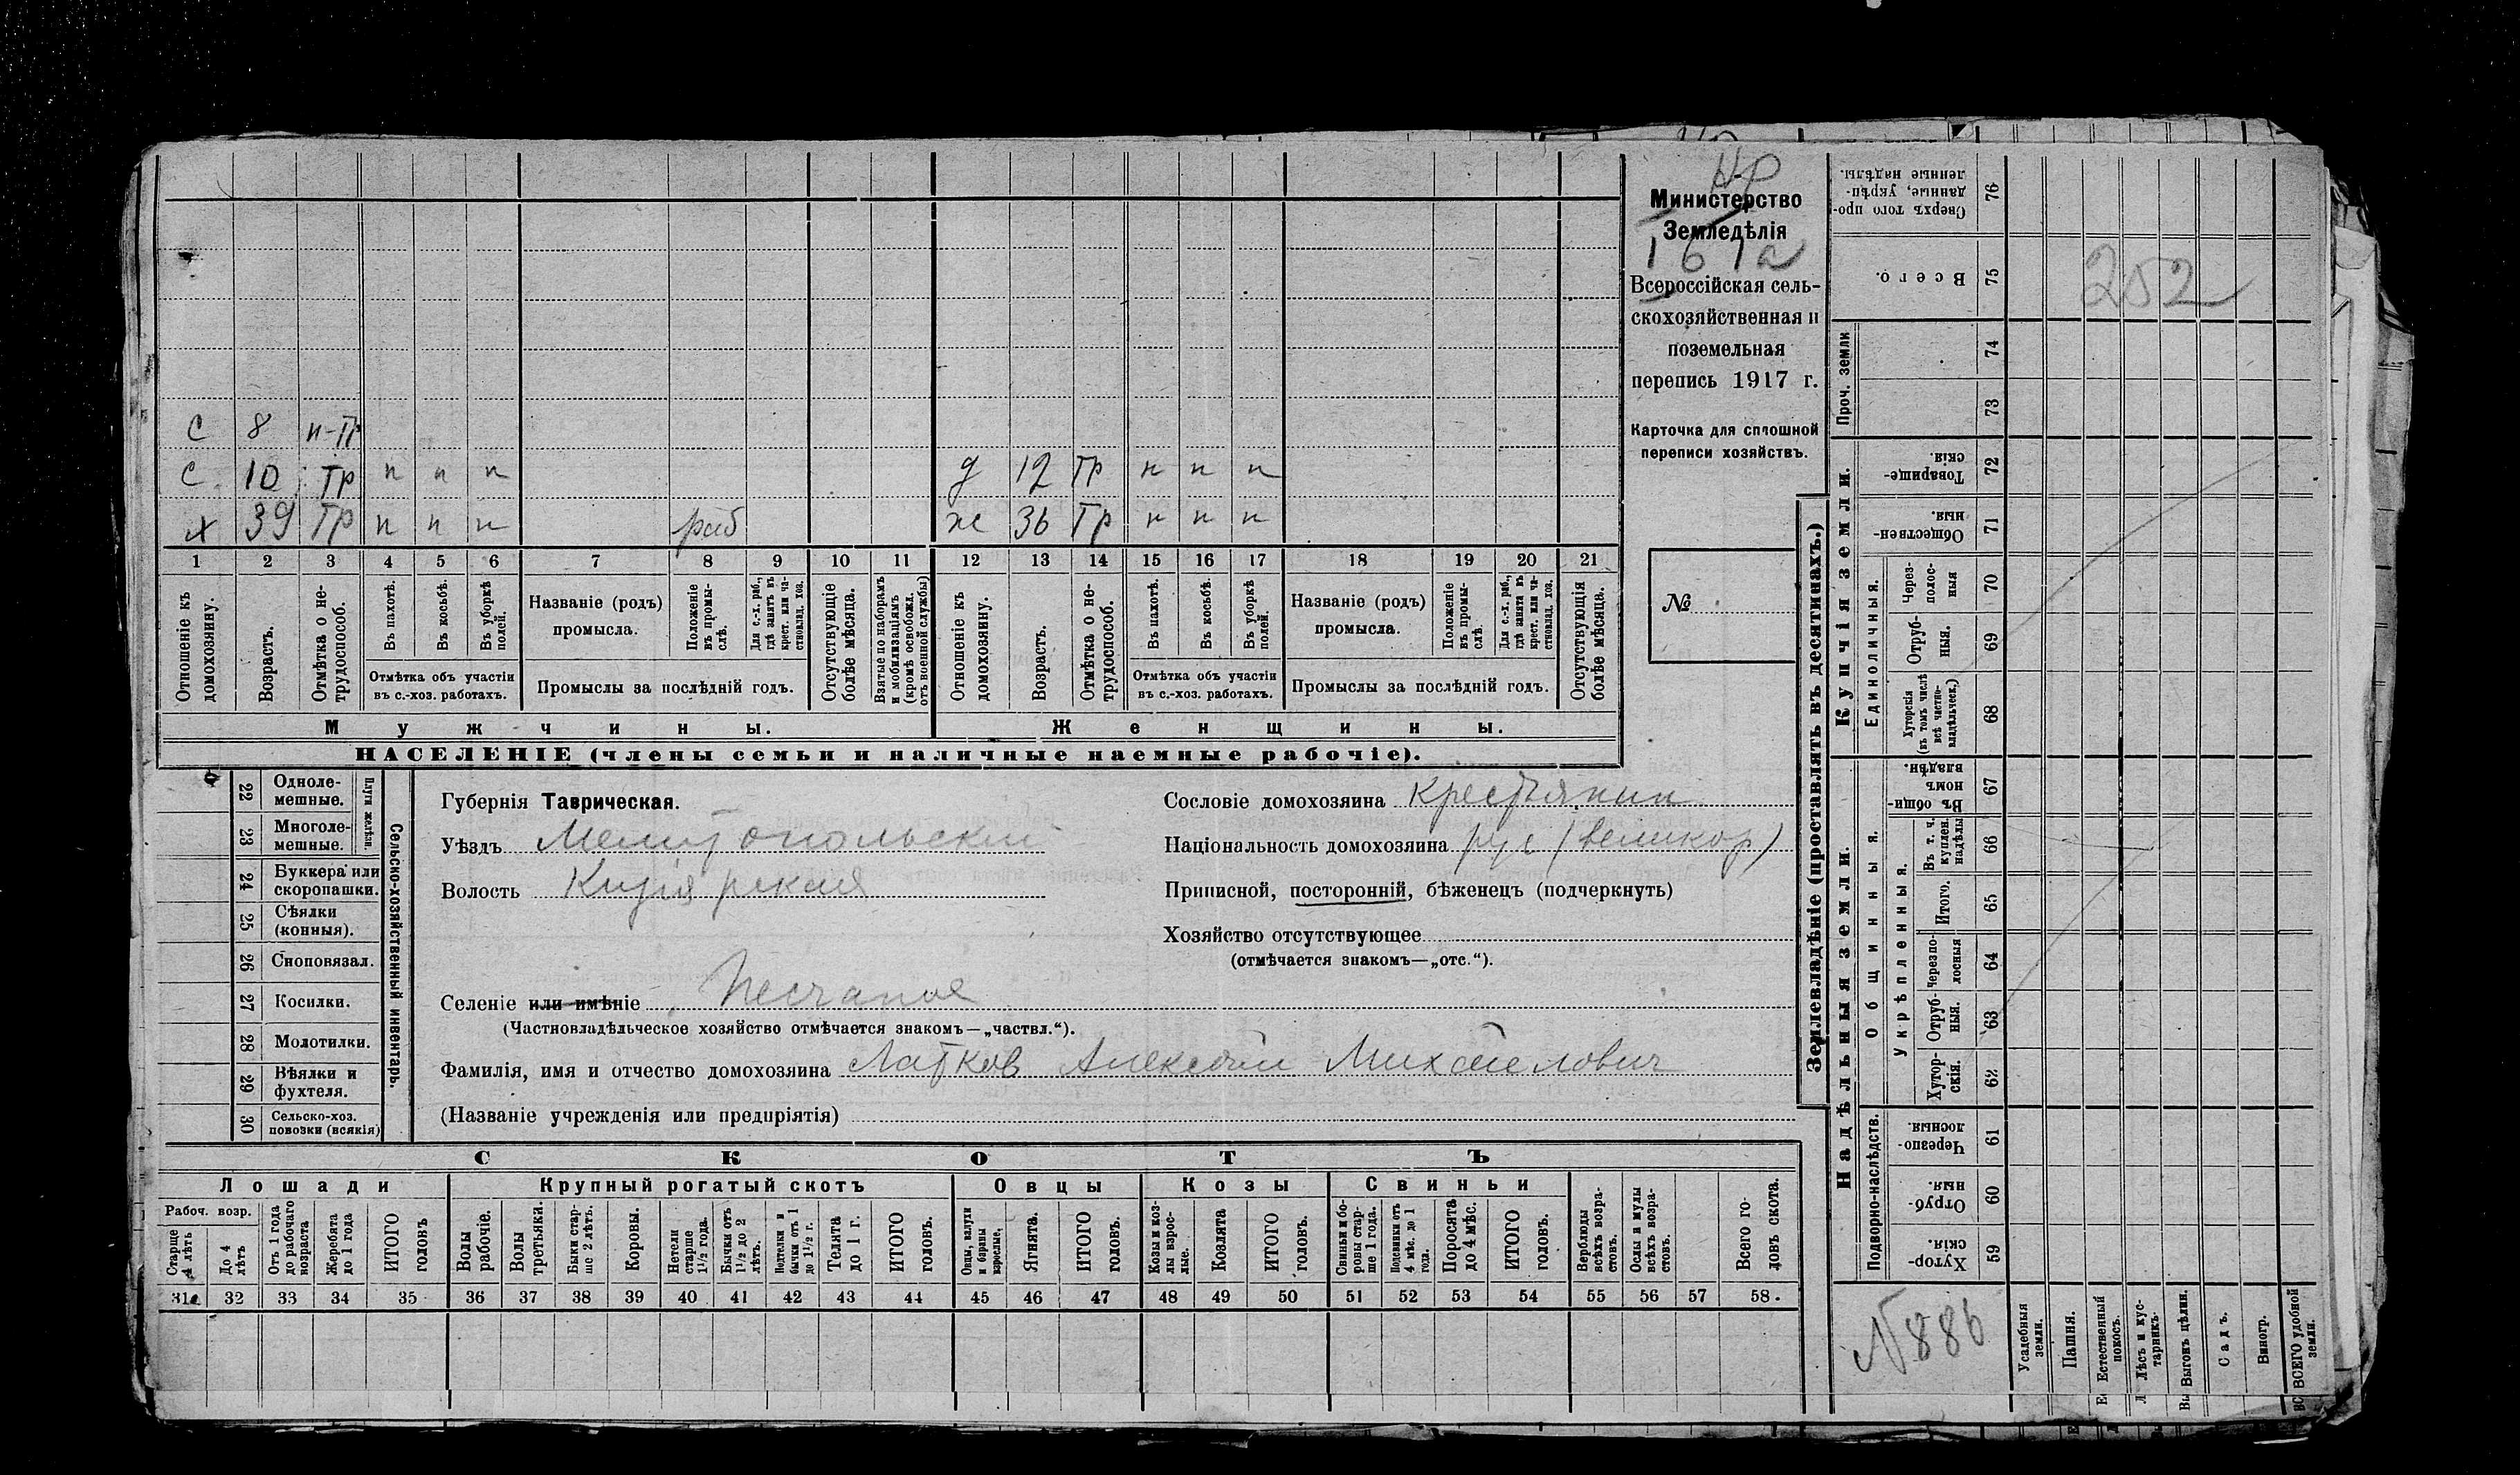 Министерство
Земледѣлія
Всероссійская сель-
скохозяйственная и
поземельная
перепись 1917 г.
Карточка для сплошной
переписи хозяйствъ.
№
252
с 8 н-тр
с 10 тр п п п д 12 тр п п п
х 39 тр п п п раб ж 36 тр п п п
1 2 3 4 5 6 7 8 9 10 11 12 13 14 15 16 17 18 19 20 21
Отношеніе къ домохозяину.
Возрастъ.
Отмѣтка о не-трудоспособ.
Въ пахотѣ.
Въ косьбѣ.
Въ уборкѣ полей.
Отмѣтка объ участіи
въ с.-хоз. работахъ.
Названіе (родъ)
промысла.
Положеніе въ промы-слѣ.
Для с.-х. раб., гдѣ занятъ въ крест. или ча-стновлад. хоз.
Промыслы за послѣдній годъ.
Отсутствующіе болѣе мѣсяца.
Взятые по наборамъ и мобилизаціямъ (кромѣ освобожд. отъ военной службы)
Отношеніе къ домохозяину.
Возрастъ.
Отмѣтка о не-трудоспособ.
Въ пахотѣ.
Въ косьбѣ.
Въ уборкѣ полей.
Отмѣтка объ участіи
въ с.-хоз. работахъ.
Названіе (родъ)
промысла.
Положеніе въ промы-слѣ.
Для с.-х. раб., гдѣ занята въ крест. или ча-стновлад. хоз.
Промыслы за послѣдній годъ.
Отсутствующія болѣе мѣсяца.
Мужчины. Женщины.
НАСЕЛЕНІЕ (члены семьи и наличные наемные рабочіе).
22 Одноле-мешные.
23 Многоле-мешные.
Плуги желѣзн.
24 Буккера или скоропашки.
25 Сѣялки (конныя).
26 Сноповязал.
27 Косилки.
28 Молотилки.
29 Вѣялки и фухтеля.
30 Сельско-хоз. повозки (всякія)
Сельско-хозяйственный инвентарь.
Губернія Таврическая.
Уѣздъ Мелитопольский
Волость Кизіярская
Сословіе домохозяина крестьянин
Національность домохозяина рус (великор)
Приписной, посторонній, бѣженецъ (подчеркнуть)
Хозяйство отсутствующее
(отмѣчается знакомъ—„отс.“).
Селеніе или имѣніе Песчаное
(Частновладѣльческое хозяйство отмѣчается знакомъ—„частвл.“).
Фамилія, имя и отчество домохозяина Латков Алексѣй Михайлович
(Названіе учрежденія или предпріятія)
СКОТЪ
Лошади Крупный рогатый скотъ Овцы Козы Свиньи
Рабоч. возр.
Старше 4 лѣтъ
До 4 лѣтъ
Отъ 1 года до рабочаго возраста
Жеребята до 1 года
ИТОГО головъ
Волы рабочіе.
Волы третьяки.
Быки стар-ше 2 лѣтъ.
Коровы.
Нетели старше 1½ года.
Бычки отъ 1½ до 2 лѣтъ.
Подтелки и бычки отъ 1 до 1½ г.
Телята до 1 г.
ИТОГО головъ.
Овцы, валухи и бараны взрослые.
Ягнята.
ИТОГО головъ.
Козы и коз-лы взрос-лые.
Козлята
ИТОГО головъ.
Свиньи и бо-ровы стар-ше 1 года.
Подсвинки отъ 4 мѣс. до 1 года.
Поросята до 4 мѣс.
ИТОГО головъ.
Верблюды всѣхъ возра-стовъ.
Ослы и мулы всѣхъ возра-стовъ.
Всего го-ловъ скота.
31 32 33 34 35 36 37 38 39 40 41 42 43 44 45 46 47 48 49 50 51 52 53 54 55 56 57 58.
Землевладѣніе (проставлять въ десятинахъ.)
Купчія земли.
Надѣльныя земли.
Сверхъ того про-данные, укрѣп-ленные надѣлы. 76
Всего. 75
Проч. земли 74
73
Товарище-скія. 72
Обществен-ныя. 71
Единоличныя.
Через-полос-ныя 70
Отруб-ныя. 69
Хуторскія (въ томъ числѣ всѣ частно-владѣльческ.) 68
Общинныя.
Въ общи-номъ владѣн. 67
Укрѣпленныя.
Въ т. ч. куплен. надѣлы 66
Итого. 65
Черезпо-лосныя 64
Отруб-ныя. 63
Хутор-скія. 62
Подворно-наслѣдств.
Черезпо-лосныя 61
Отруб-ныя. 60
Хутор-скія. 59
N 886
Усадебныя земли.
Пашня.
Естественный покосъ.
Лѣсъ и кус-тарникъ.
Выгонъ цѣлин.
Садъ.
Виногр.
ВСЕГО удобной земли.